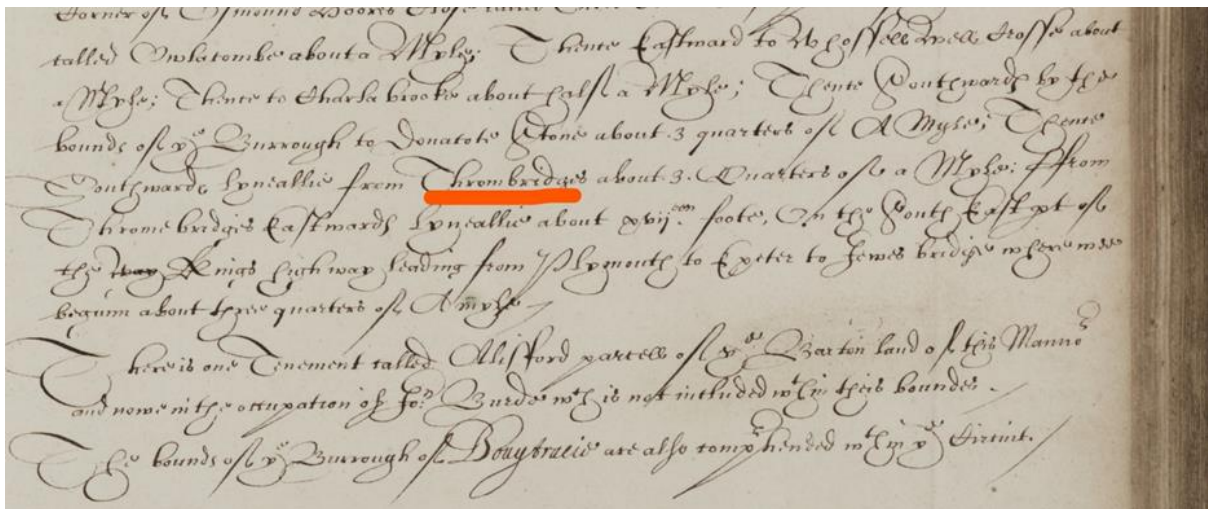 Corner of Osmound Moores Close
called Owlacombe about a Myle; Thence Eastward to Whossell well Crosse about
a Myle; Thence to Charla brooke about half a Myle; Thence Southward by the
bounds of ye Burrough to Donacote Stone about 3 quarters of A Myle; Thence
Southwards lyneallie from Thrombredges about 3. Quarters of a Myle: ffrom
Thromebridges Eastwards lyneallie about xvijen foote, On the South East pt of
the way Kings high way leading from Plymouth to Exeter to Jewes bridge where wee
begunn about three quarters of A myle
There is one Tenement called Alisford parcell of ye Barton land of this Manno
and nowe in the occupation of Jo: Burde wch is not included wthin theis boundes.
The bounds of ye Burrough of Bougtracie are also comphended wthin ye Circuit.